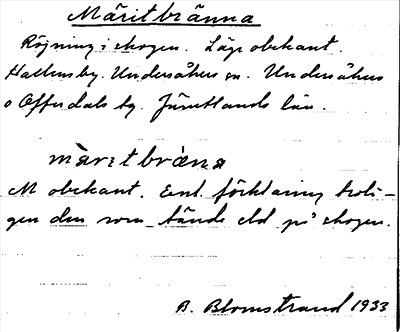 Märitbränna
Röjning i skogen. Läge obekant.
Hallens by. Undersåkers sn. Undersåkers
o Offerdals tg. Jämtlands län.
màrɩtbræ̀na
M obekant. Enl. förklaring troli-
gen den som tände eld på skogen.
B. Blomstrand 1933